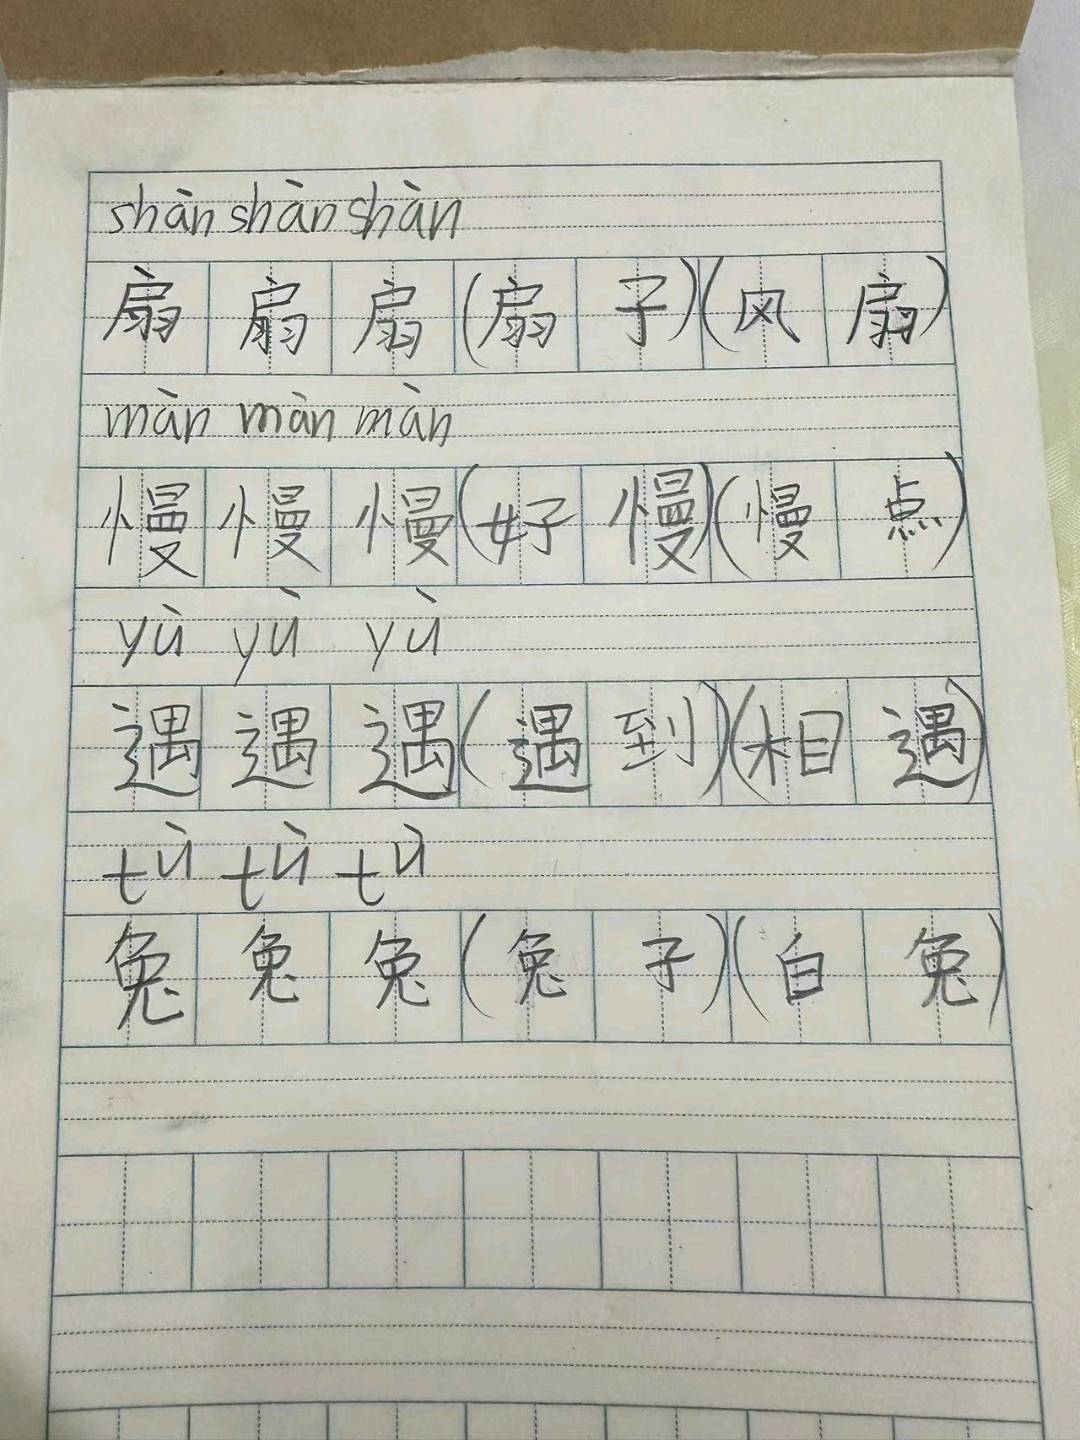 shàn shàn shàn
扇 扇 扇 (扇子) (风扇)
màn màn màn
慢 慢 慢 (好慢) (慢点)
yù yù yù
遇 遇 遇 (遇到) (相遇)
tù tù tù
兔 兔 兔 (兔子) (白兔)